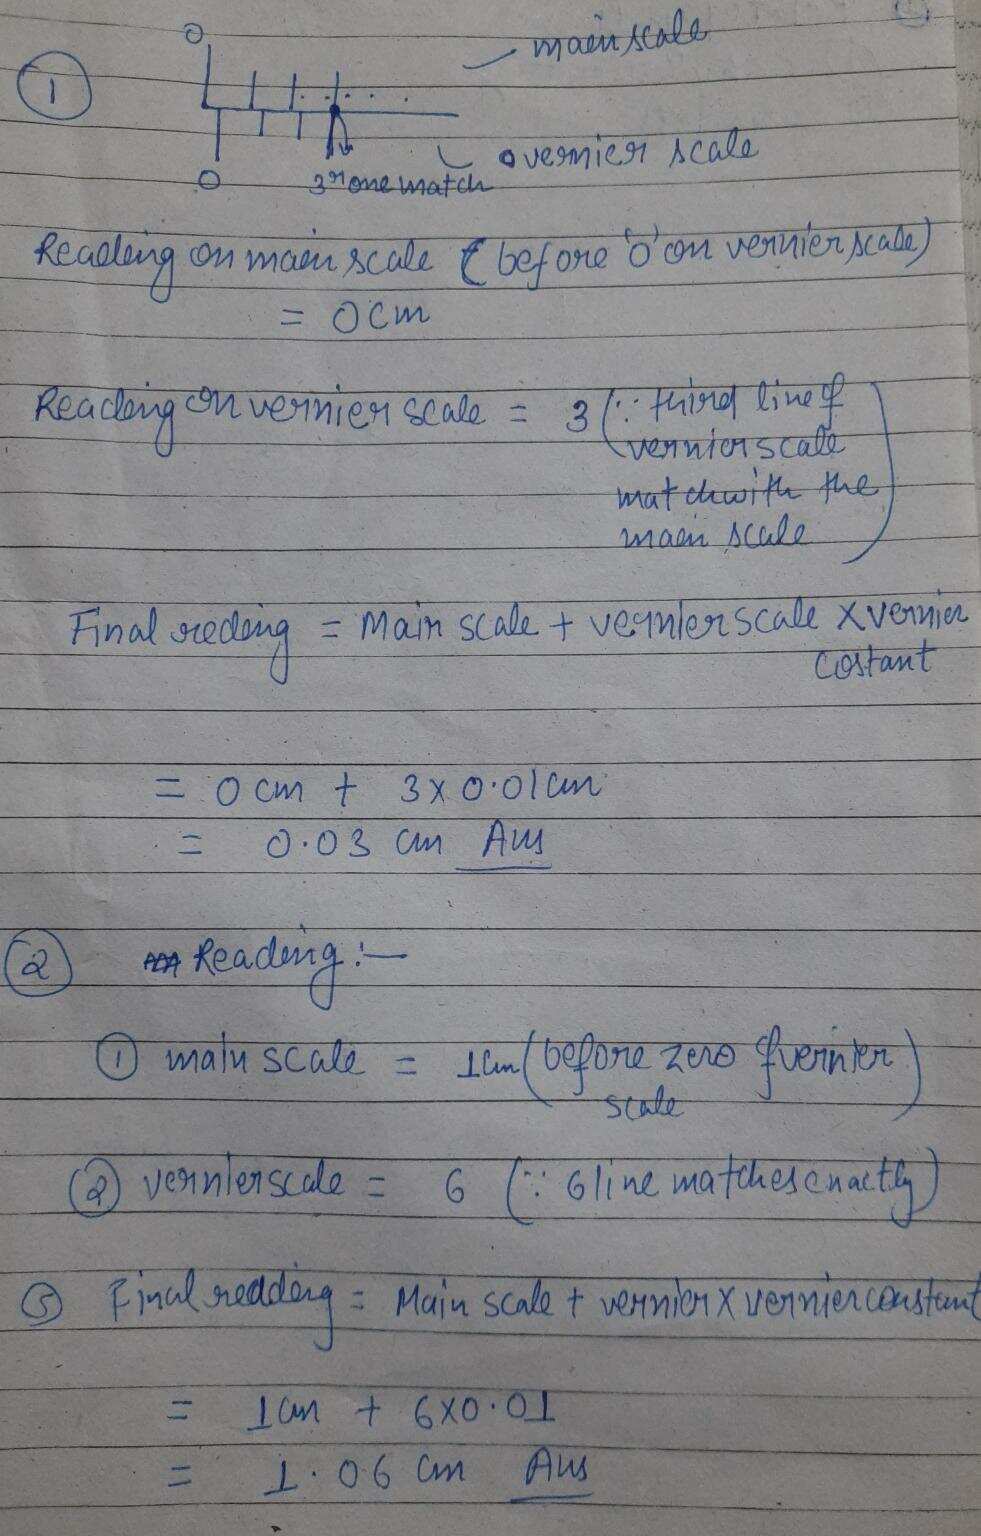 ①
O
main scale
vernier scale
O
3rd one match
Reading on main scale (before '0' on vernier scale)
= 0 cm
Reading on vernier scale = 3 (∵ third line of
vernier scale
match with the
main scale)
Final reding = Main scale + vernier scale × vernier
costant
= 0 cm + 3 × 0.01 cm
= 0.03 cm Ans
② Reading :—
① main scale = 1 cm (before zero of vernier
scale)
② vernier scale = 6 (∵ 6 line matches exactly)
③ Final redding = Main scale + vernier × vernier constant
= 1 cm + 6×0.01
= 1.06 cm Ans